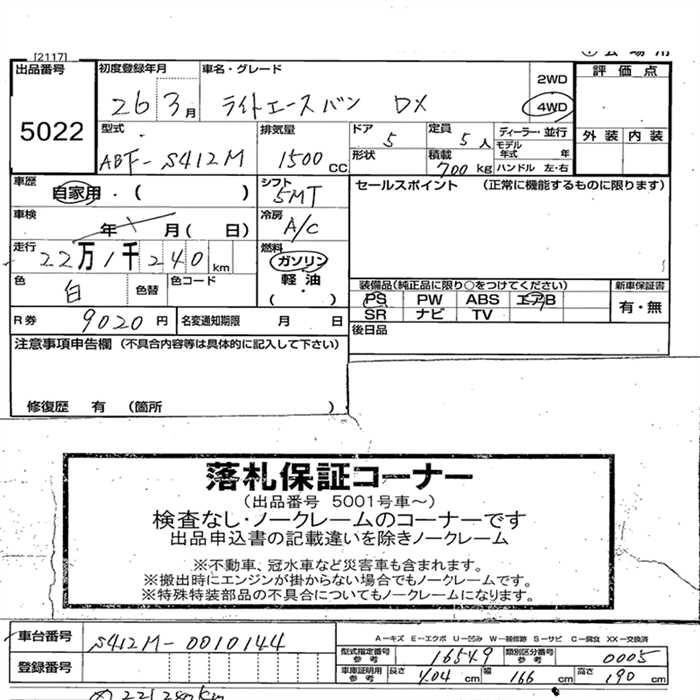 [2117]
出品番号
5022
初度登録年月
26 3月
車名・グレード
ライトエースバン DX
2WD
4WD
評価点
外装 内装
型式
ABF-S412M
排気量
1500 CC
ドア
5
定員
5人
ディーラー・並行
形状
積載
700 kg
モデル年式 年
ハンドル 左・右
車歴
自家用・( )
シフト
5MT
セールスポイント (正常に機能するものに限ります)
車検
年 月( 日)
冷房
A/C
走行
22万1千240km
燃料
ガソリン
軽油
・
( )
色
白
色替
色コード
装備品(純正品に限り○をつけてください)
新車保証書
PS PW ABS エアB
有・無
SR ナビ TV
R券
9020円
名変通知期限 月 日
後日品
注意事項申告欄 (不具合内容等は具体的に記入して下さい)
修復歴 有 (箇所 )
落札保証コーナー
(出品番号 5001号車〜)
検査なし・ノークレームのコーナーです
出品申込書の記載違いを除きノークレーム
※不動車、冠水車など災害車も含まれます。
※搬出時にエンジンが掛からない場合でもノークレームです。
※特殊特装部品の不具合についてもノークレームになります。
車台番号
S412M-0010144
A－キズ E－エクボ U－凹み W－補修跡 S－サビ C－腐食 XX－交換済
登録番号
型式指定番号参考
16549
類別区分番号参考
0005
車庫証明用参考
長さ 404 cm 幅 166 cm 高さ 190 cm
221240km